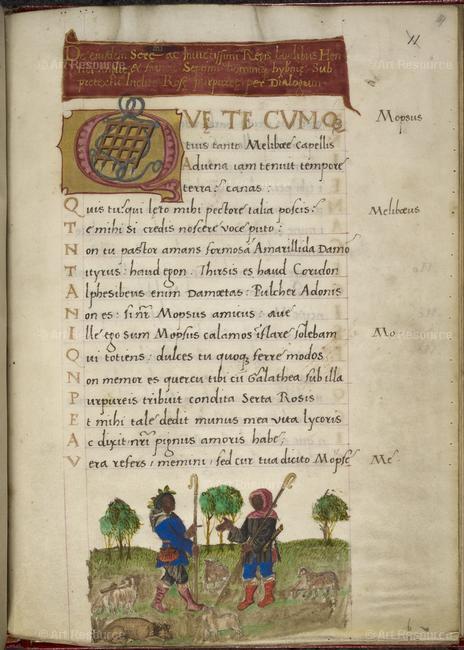 De eiusdem Sere mi ac Inuictissimi Regis laudibus Hen
rici Septimi Sub
pretextu Inclite Rose purpuree per Dialogum
QVE TE CVMQ Mopsus
tuis tanto Melibœe capellis
Aduena iam tenuit tempore
terra: canas:
Quis tu: qui lęto mihi pectore talia poscis: Melibœus
Te mihi si credis noscere voce puto:
Non tu pastor amans formosā Amarillida Damo
Tityrus: haud egon. Thirsis es haud Coridon
Alphesibeus enim Damœtas: Pulcher Adonis
Non es: si nr̄ Mopsus amicus: aue
Ille ego sum Mopsus calamos īflare solebam Mo.
Qui totiens: dulces tu quoqꝫ ferre modos
Non memor es quercu tibi cū Galathea sub illa
Purpureis tribuit condita Serta Rosis
Et mihi tale dedit munus mea vita lycoris
Ac dixit nr̄i pignus amoris habe,
Vera refers: memini: sed cur tua dicito Mopse Me.